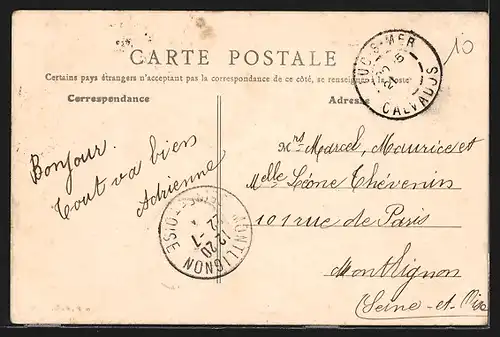 10
CARTE POSTALE
Certains pays étrangers n'acceptant pas la correspondance de ce côté, se renseigner à la Poste
Correspondance
Adresse
LUC-S-MER
CALVADOS
Bonjour.
Tout va bien
Adrienne
Mrs Marcel, Maurice et
Melle Léone Thévenin
101 rue de Paris
Montlignon
(Seine-et-Oise
MONTLIGNON
SEINE-ET-OISE
12 20
22 -1